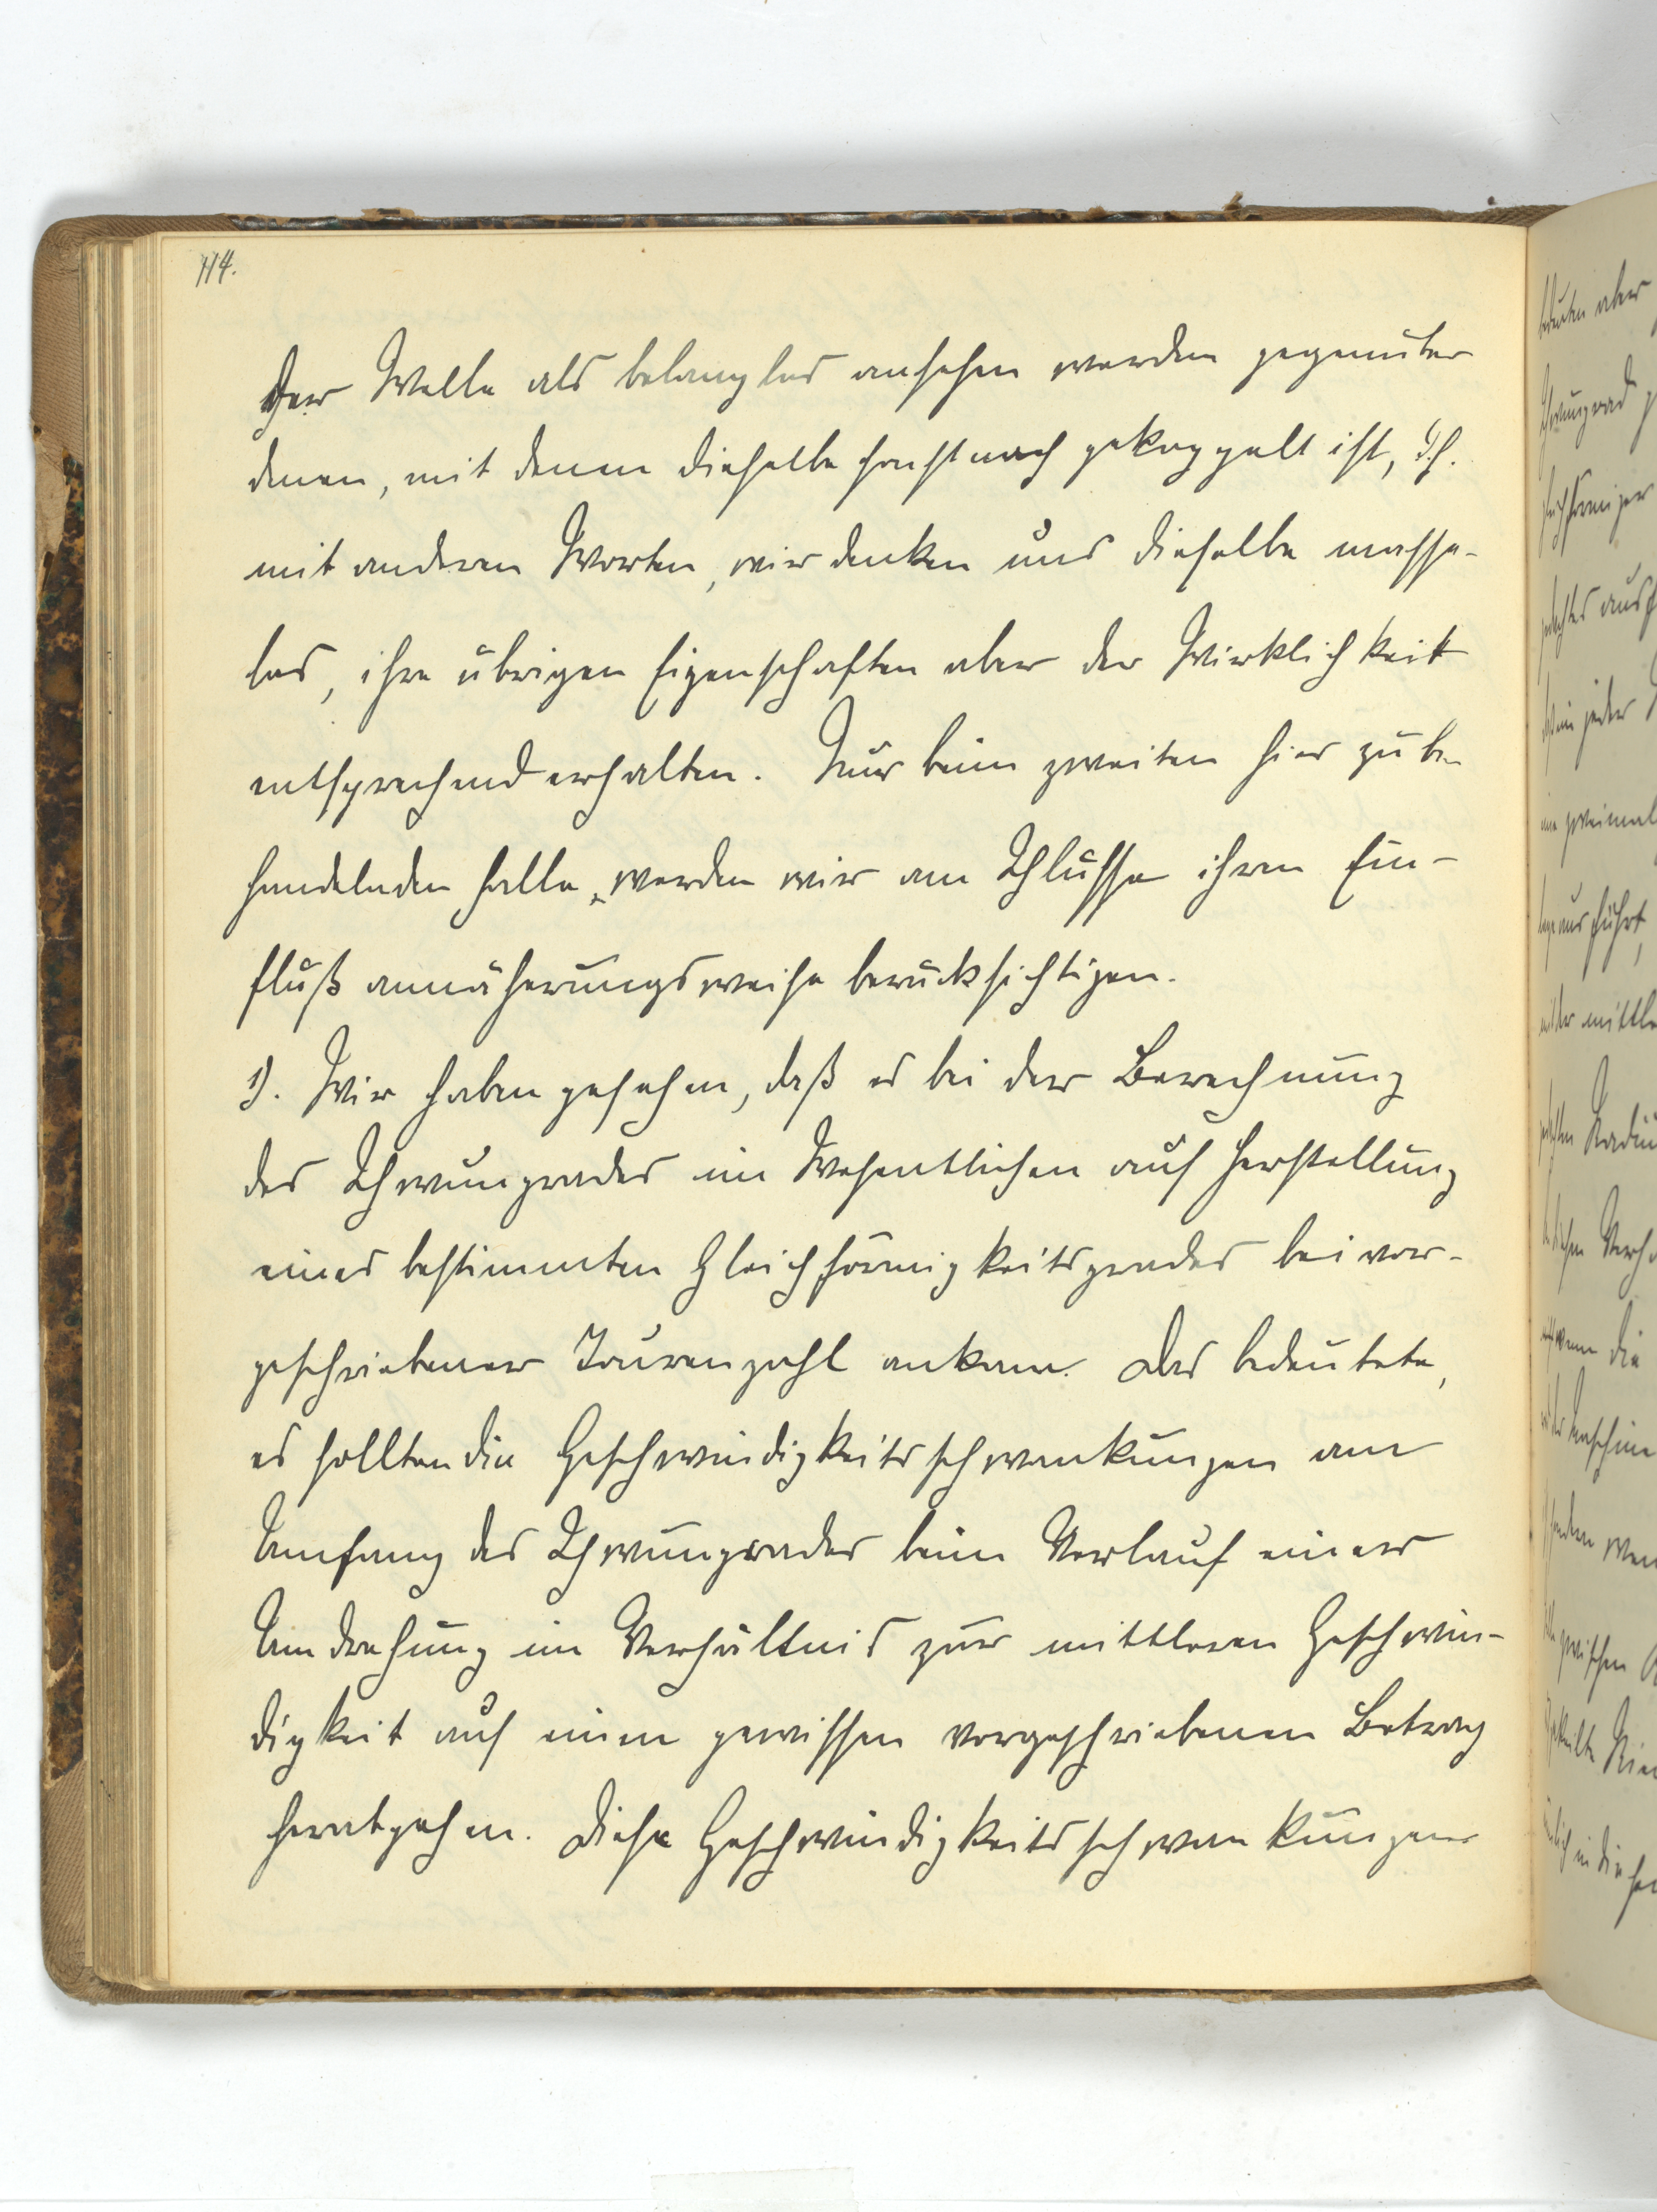 114.
der Welle als belanglos ansehen werden gegenüber
denen, mit denen dieselbe sonst noch gekoppelt ist, d.h.
mit anderen Worten, wir denken uns dieselbe masse-
los, ihre übrigen Eigenschaften aber der Wirklichkeit
entsprechend erhalten. Nur beim zweiten hier zu be-
handelnden Falle, werden wir am Schlusse ihren Ein-
fluß annäherungsweise berücksichtigen.
1). Wir haben gesehen, daß es bei der Berechnung
des Schwungrades im Wesentlichen auf Herstellung
eines bestimmten Gleichförmigkeitsgrades bei vor-
geschriebener Tourenzahl ankam. Das bedeutete,
es sollten die Geschwindigkeitsschwankungen am
Umfang des Schwungrades beim Verlauf einer
Umdrehung im Verhältnis zur mittleren Geschwin-
digkeit auf einen gewissen vorgeschriebenen Betrag
herabgehen. Diese Geschwindigkeitsschwankungen
aber
Schwungrad
ausf
jeder
zweimal
ausführt,
der mittle
Radiu
die
wen
zwischen